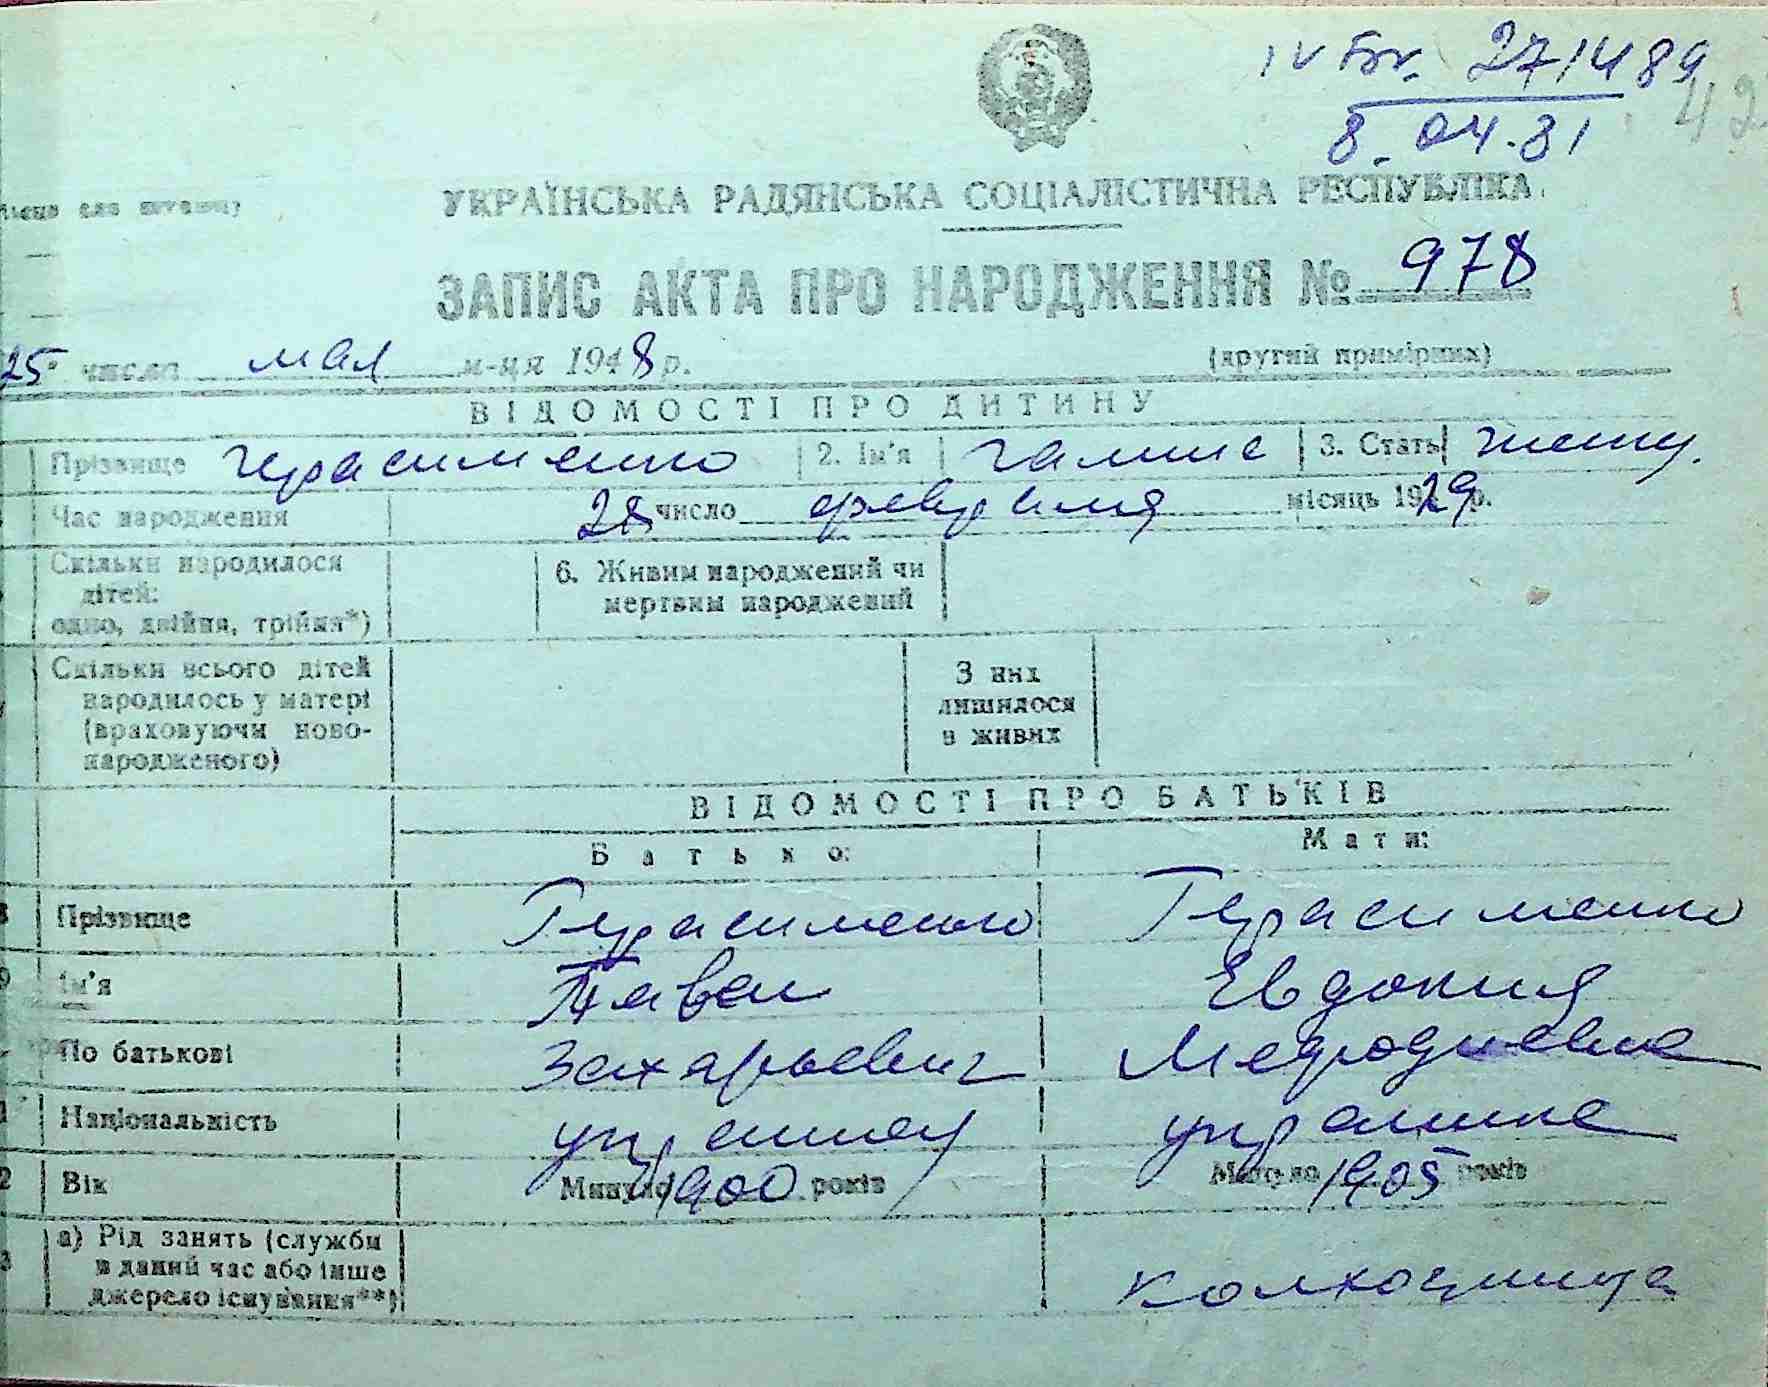 IV БК. 271489
8.04.81
42
УКРАЇНСЬКА РАДЯНСЬКА СОЦІАЛІСТИЧНА РЕСПУБЛІКА
ЗАПИС АКТА ПРО НАРОДЖЕННЯ № 978
25 числа мая м-ця 1948 р. (другий примірник)
ВІДОМОСТІ ПРО ДИТИНУ
Прізвище Герасименко 2. Ім'я Галина 3. Стать женщ.
Час народження 28 число февраля місяць 1929 р.
Скільки народилося дітей: одно, двійня, трійня*)
6. Живим народжений чи мертвим народжений
Скільки всього дітей народилось у матері (враховуючи ново-народженого)
З них лишилося в живих
ВІДОМОСТІ ПРО БАТЬКІВ
Батько: Мати:
8 Прізвище Герасименко Герасименко
9 Ім'я Павел Евдокия
По батькові Захарьевич Мефодиевна
Національність украинец украинка
2 Вік Минуло 1900 років Минуло 1905 років
3 а) Рід занять (служби в даний час або інше джерело існування**) колхозница